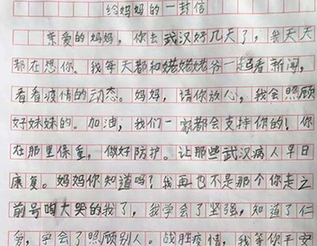 给妈妈的一封信
亲爱的妈妈，你去武汉好几天了，我天天
都在想你。我每天都和姥姥姥爷一起看新闻，
看看疫情的动态。妈妈，请你放心，我会照顾
好妹妹的。加油，我们一家都会支持你的！你
在那里保重，做好防护。让那些武汉病人早日
康复。妈妈你知道吗？我再也不是那个你走之
前号啕大哭的我了，我学会了坚强，知道了仁
学会了照顾别人。战胜疫情，我等你平安